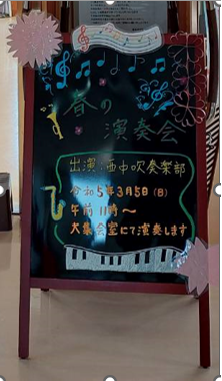 春の
演奏会
出演:西中吹奏楽部
令和5年3月5日(日)
午前 11時〜
大集会室にて演奏します